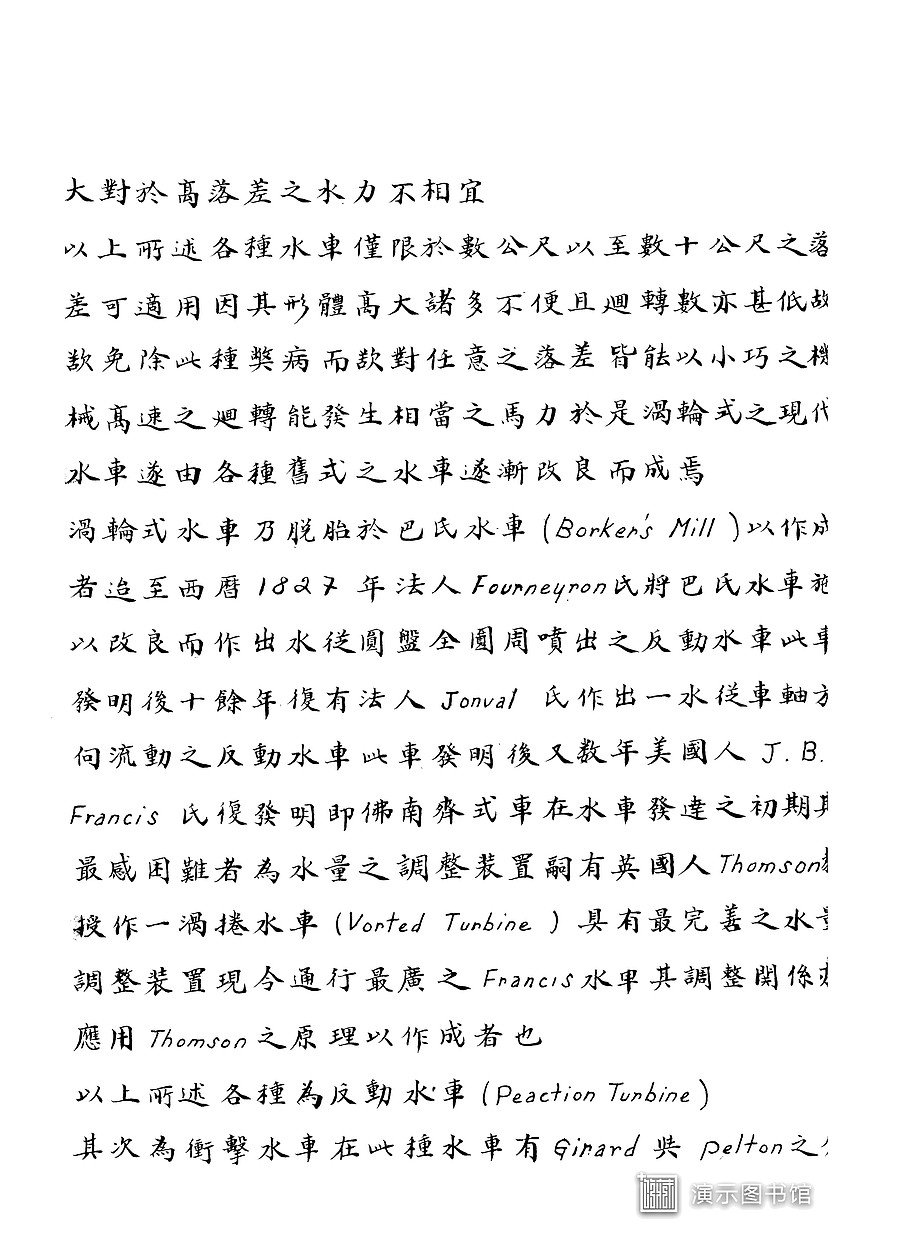 大對於高落差之水力不相宜
以上所述各種水車僅限於數公尺以至數十公尺之落
差可適用因其形體高大諸多不便且迴轉數亦甚低故
欲免除此種獘病而欲對任意之落差皆能以小巧之機
械高速之迴轉能發生相當之馬力於是渦輪式之現代
水車遂由各種舊式之水車逐漸改良而成焉
渦輪式水車乃脫胎於巴氏水車(Borker's Mill)以作成
者迨至西曆1827年法人Fourneyron氏將巴氏水車施
以改良而作出水從圓盤全圓周噴出之反動水車此車
發明後十餘年復有法人Jonval 氏作出一水從車軸方
向流動之反動水車此車發明後又数年美國人 J.B.
Francis 氏復發明即佛南齊式車在水車發達之初期其
最感困難者為水量之調整装置嗣有英國人Thomson教
授作一渦捲水車(Vorted Turbine)具有最完善之水量
調整装置現今通行最廣之Francis水車其調整関係
應用Thomson之原理以作成者也
以上所述各種為反動水車(Peaction Turbine)
其次為衝擊水車在此種水車有Girard 與 pelton之
演示图书馆